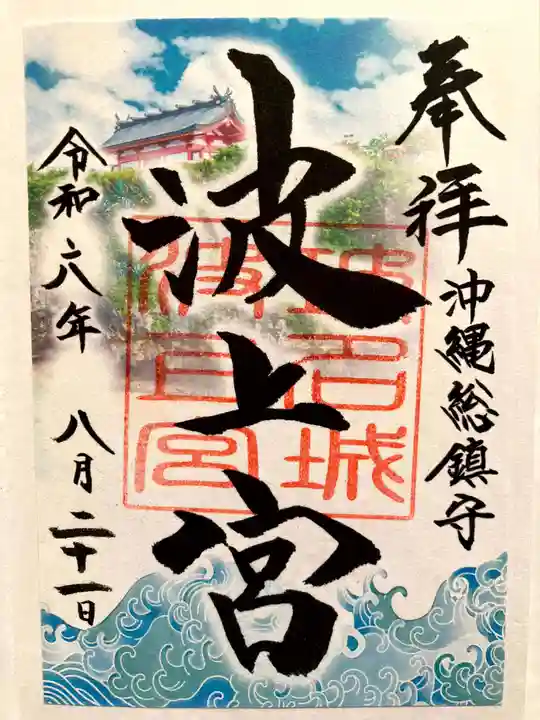 奉拝
沖縄総鎮守
波上宮
令和六年
八月二十一日